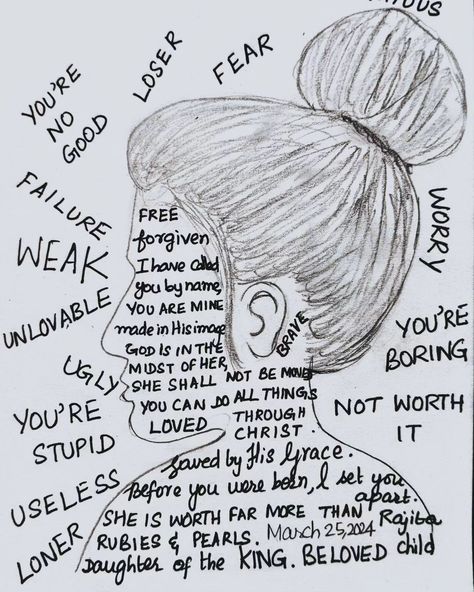 LOSER
FEAR
YOU'RE
NO
GOOD
FAILURE
WEAK
UNLOVABLE
UGLY
YOU'RE
STUPID
USELESS
LONER
WORRY
YOU'RE
BORING
NOT WORTH
IT
FREE
forgiven
I have called
you by name,
YOU ARE MINE
made in His image
GOD IS IN THE
MIDST OF HER,
SHE SHALL NOT BE MOVED
YOU CAN DO ALL THINGS
LOVED THROUGH
CHRIST.
BRAVE
Saved by His Grace.
Before you were born, I set you
apart.
SHE IS WORTH FAR MORE THAN
RUBIES & PEARLS. March 25, 2024 Rajiba
Daughter of the KING. BELOVED child